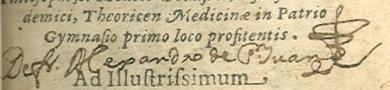 demici, Theoricen Medicinæ in Patrio
Gymnasio primo loco profitentis.
De fr. Alexandro de S. Juan
Ad Illustrissimum